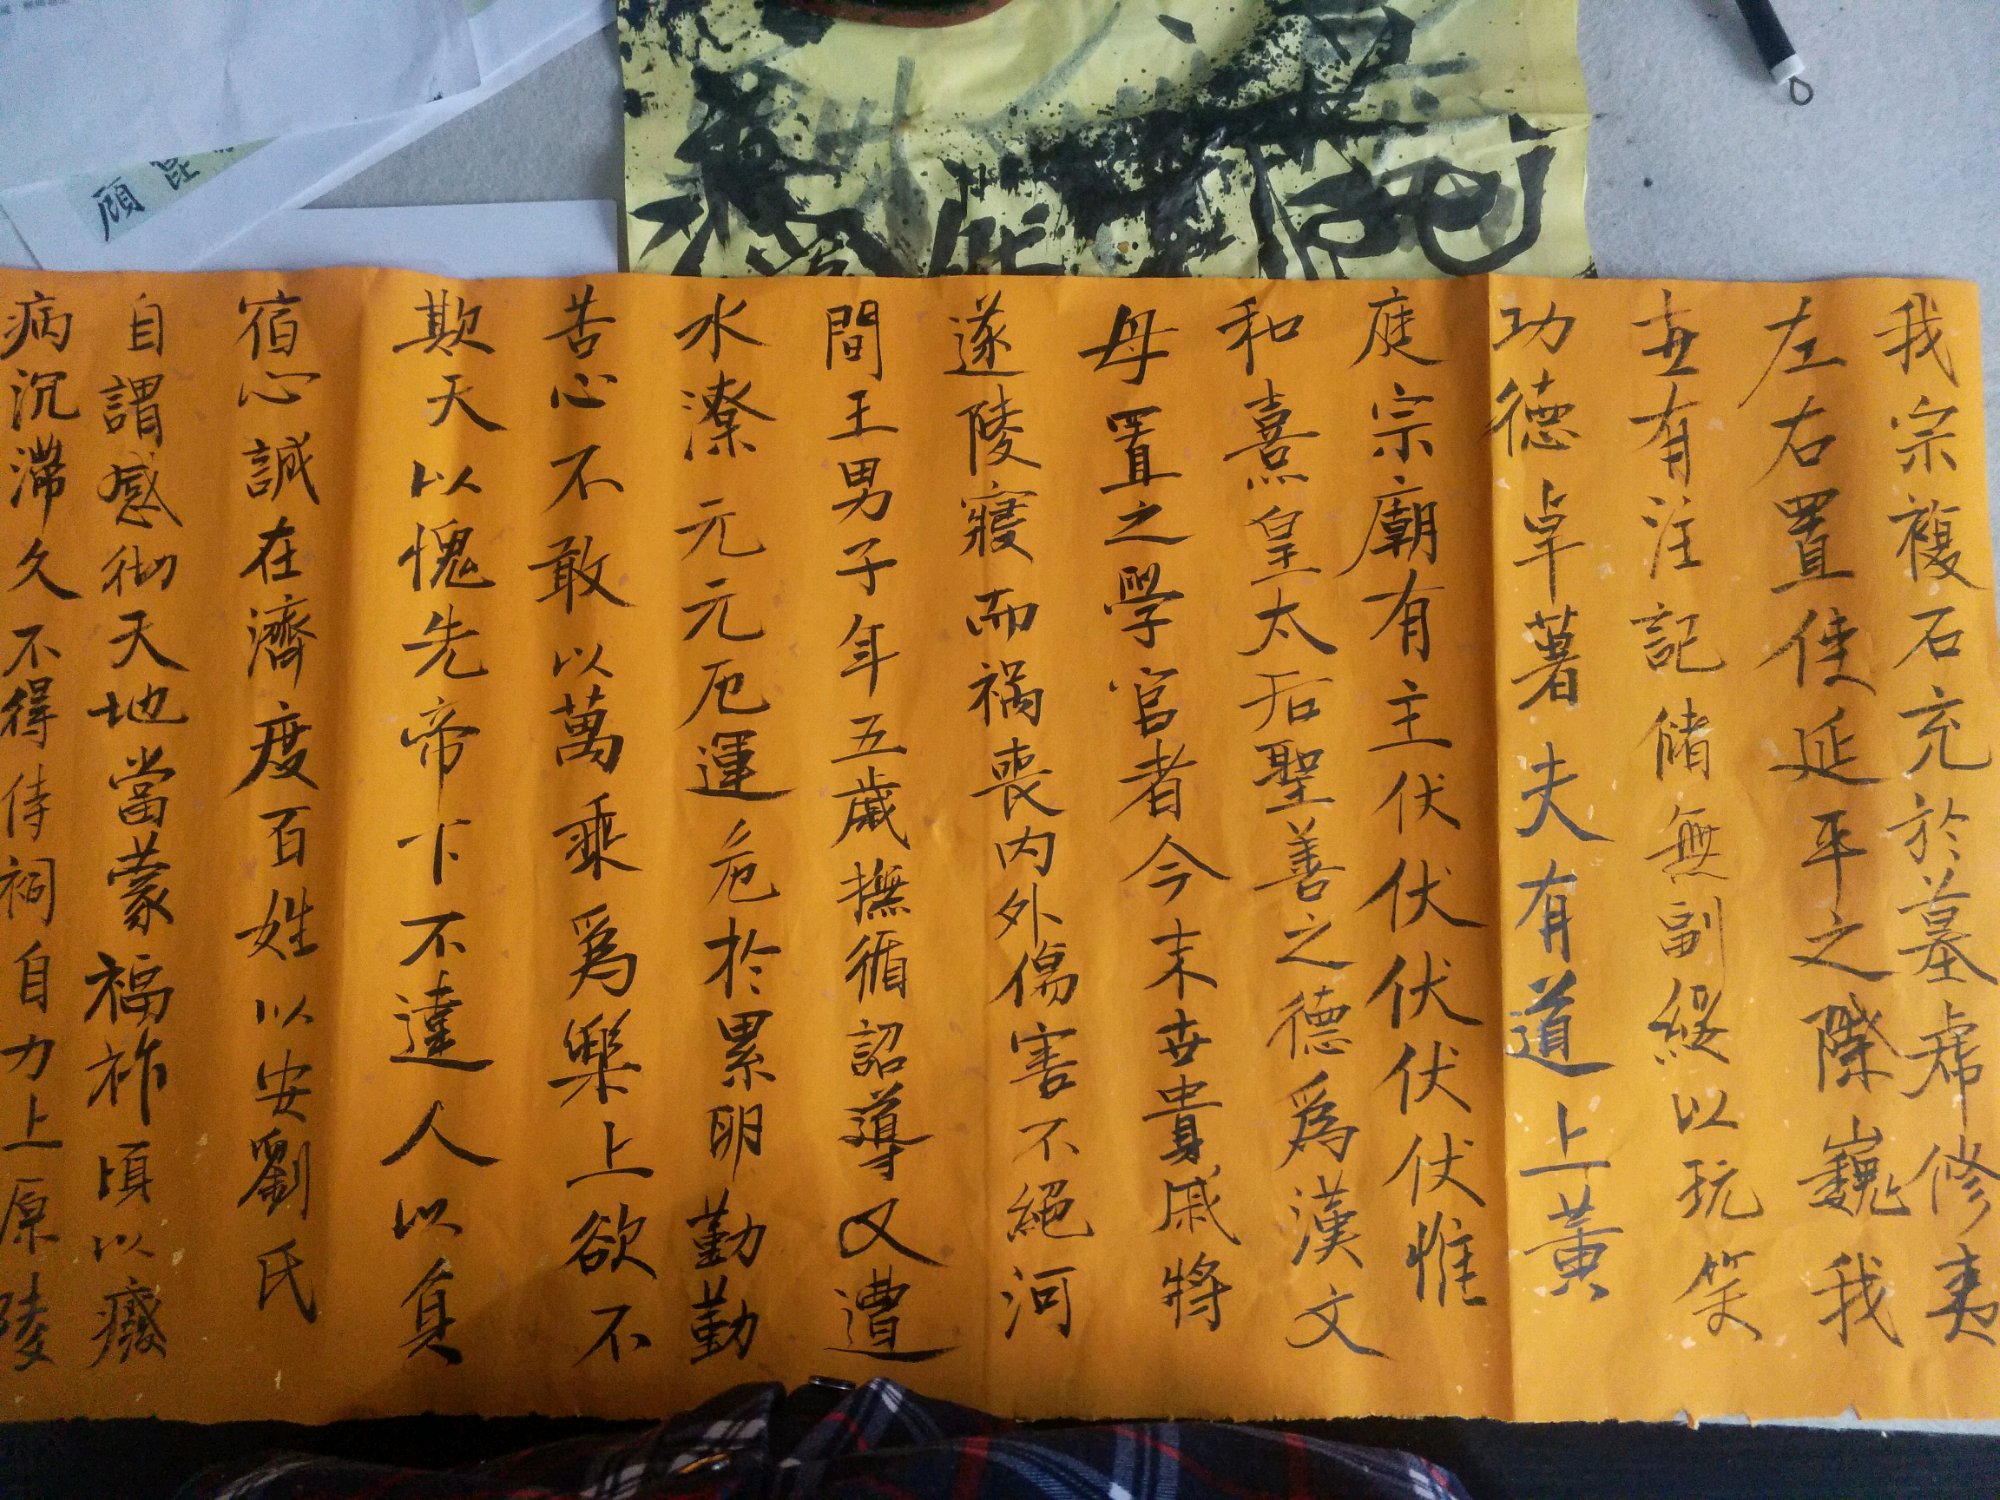 我宗複石充於墓虖修夷
左右置使延平之際巍我
世有注記储無副緩以玩笑
功德卓著夫有道上黄
庭宗廟有主伏伏伏伏伏惟
和熹皇太后聖善之德爲漢文
母置之學官者今末世貴戚將
遂陵寢而禍喪内外傷害不絕河
間王男子年五歲撫循詔導又遭
水潦元元厄運危於累卵勤勤
苦心不敢以萬乘爲樂上欲不
欺天以愧先帝下不違人以負
宿心誠在濟度百姓以安劉氏
自謂感彻天地當蒙福祚頃以癈
病沉滯久不得侍祠自力上原陵
顧昆